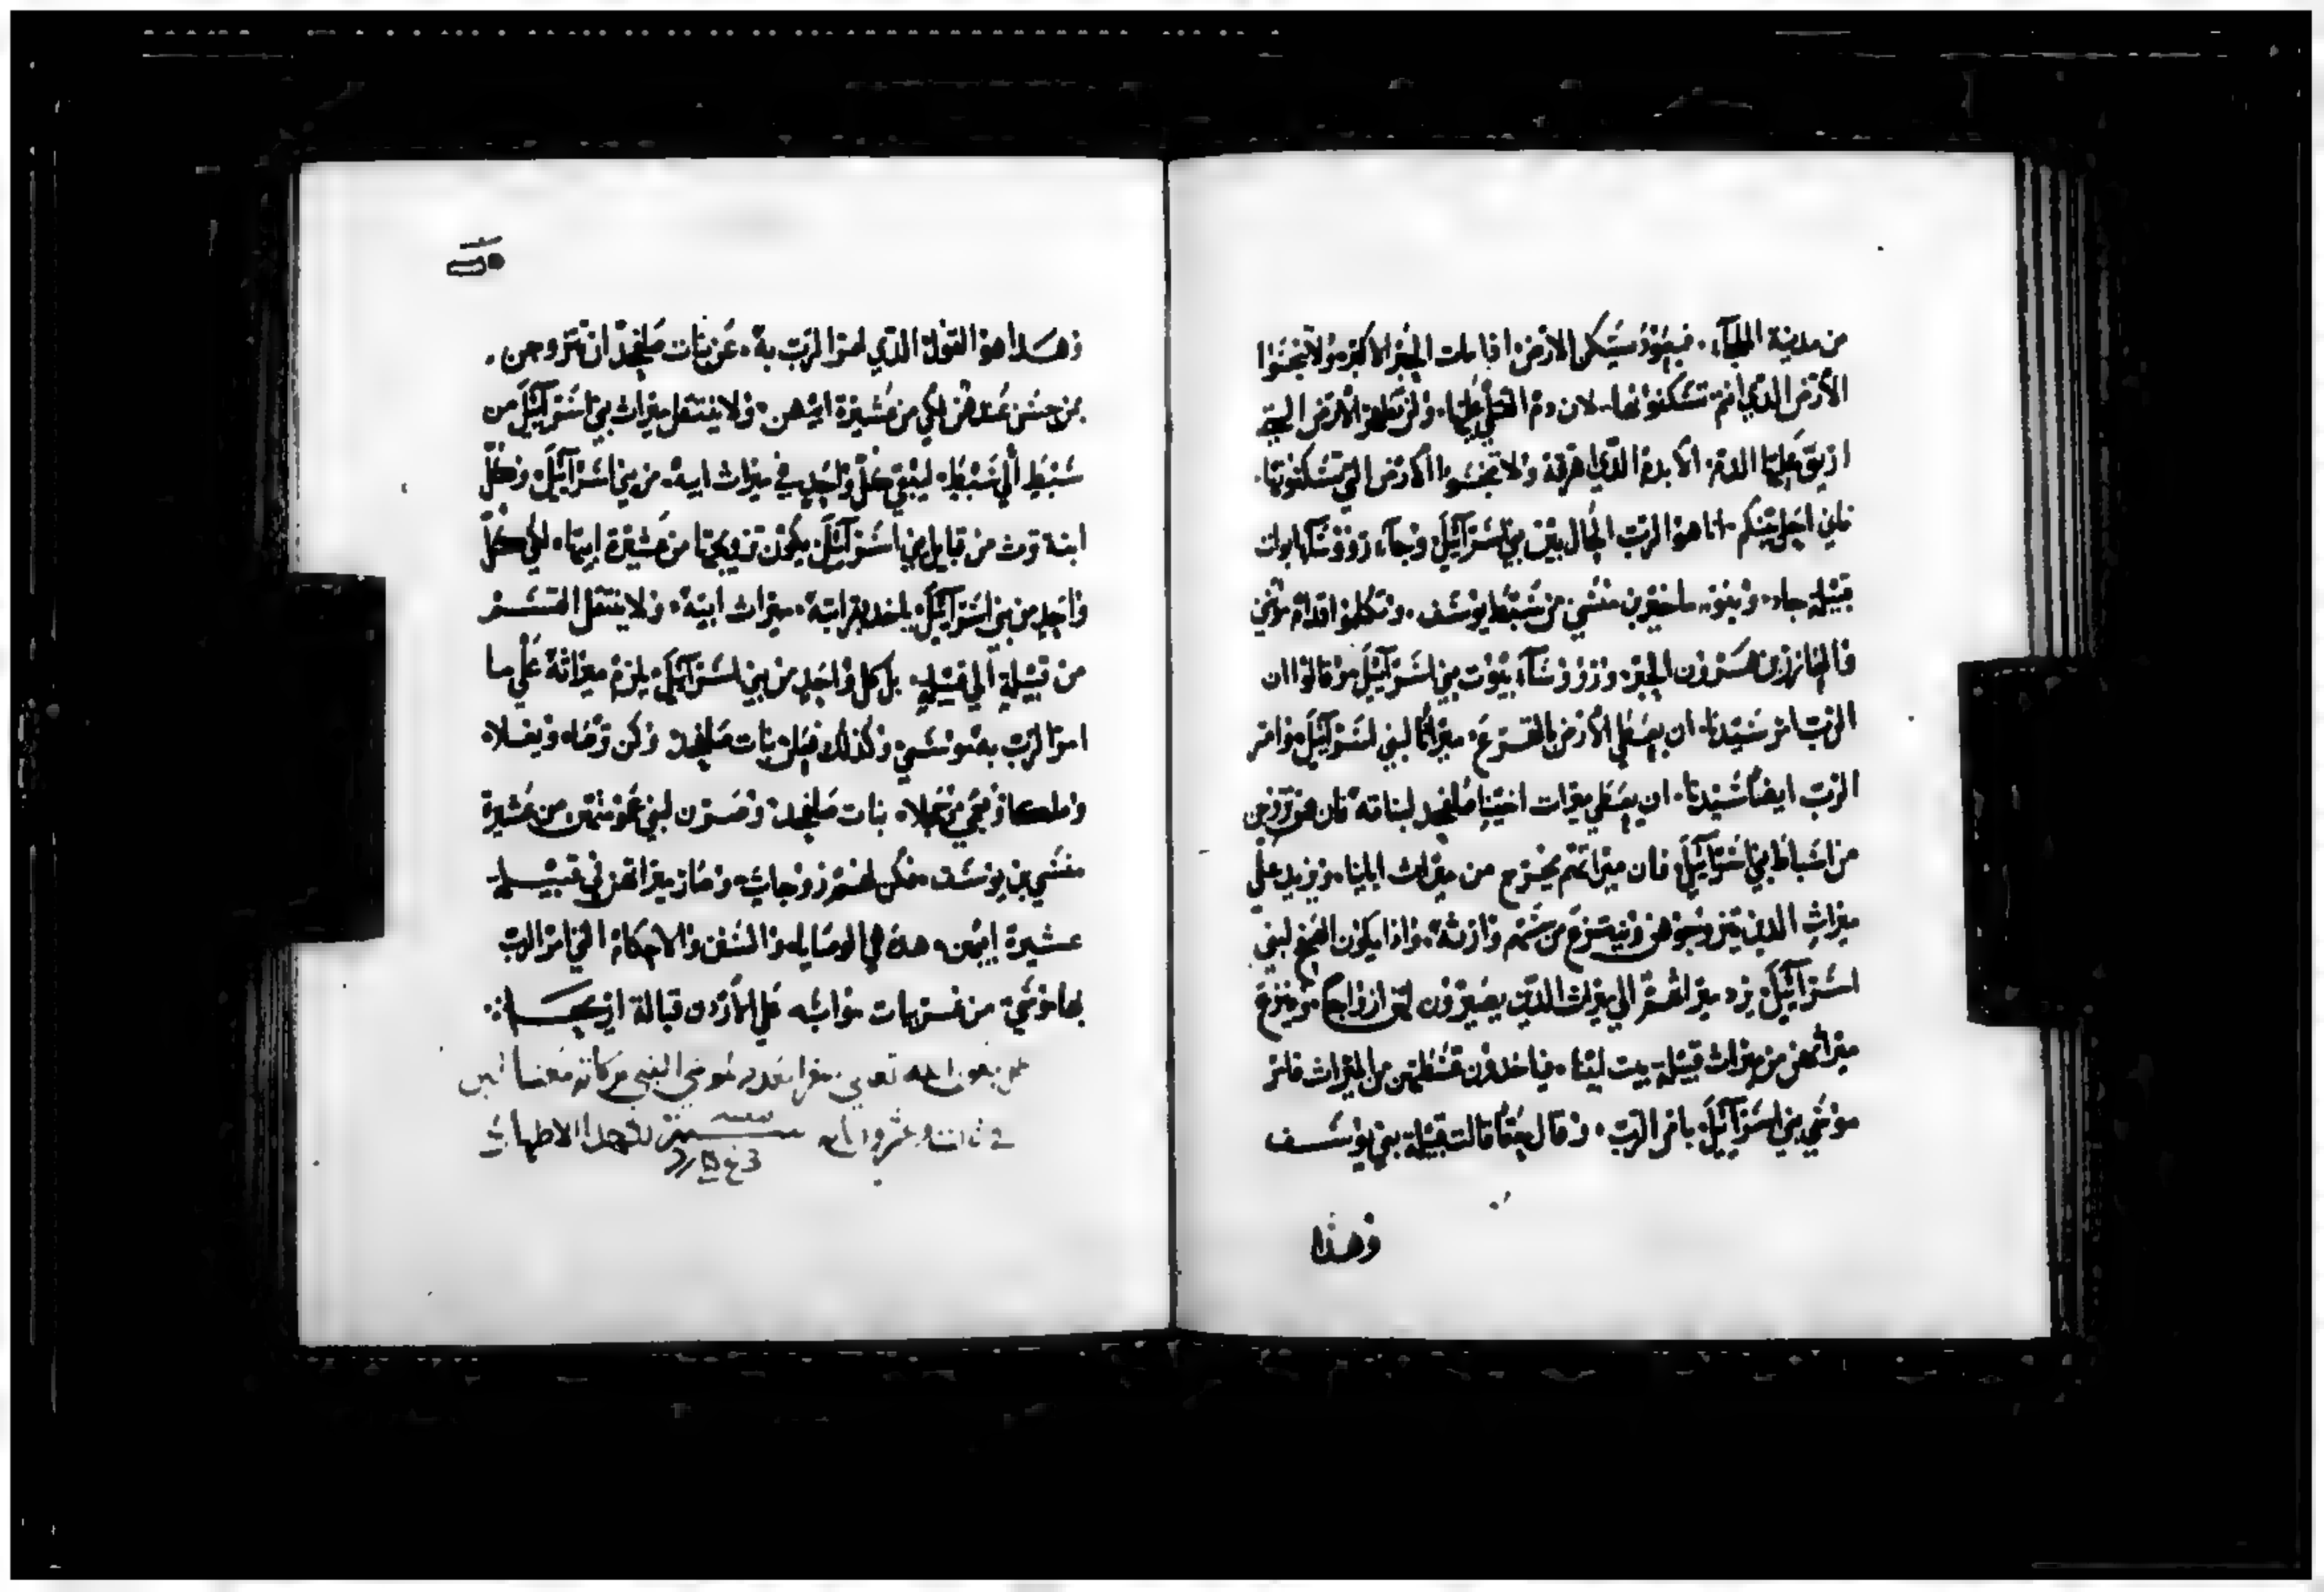 من مدينة الملجآء. فيعود يسكن الارض اذا مات الحبر الاكبر ولا تنجسوا
الارض الذي انتم تسكنونها. لان دم القتل عليها. ولن تطهر الارض التي
اريق عليها الدم. الا بدم الذي اهرقه ولا تنجسوا الارض التي تسكنونها.
فاني احل بينكم. انا هو الرب الحال بين بني اسرآئيل وجآء روؤسآ ابوات
قبيلة جاد. وبنو ماخير بن منشي من سبط يوسف. وتكلموا قدام موسي
والعازر بن هرون الحبر. وروؤسآء بيوت بني اسرآئيل وقالوا ان
الرب امر سيدنا. ان يعطي الارض بالقرع. ميراثا لبني اسرآئيل وامر
الرب ايضا سيدنا. ان يعطي ميراث اخينا صلفحد لبناته فان هن تزوجن
من اسباط بني اسرآئيل فان ميراثهم يخرج من ميراث ابائنا. ويزيد علي
ميراث الذين يتزوجوهن وينتزع من سهم وارثه. واذا يكون الصح لبني
اسرآئيل يزد ميراثهم الي ميراث الذين يصيرون لهن ازواجا وينزع
ميراثهن من ميراث قبيلة بيت ابينا. فياخذون قسطهن من الميراث فامر
موسي بني اسرآئيل بامر الرب. وقال حقا قالت قبيلة بني يوسف
وهذا
وهذا هو القول الذي امر الرب به. عن بنات صلفحد ان يتزوجن.
بمن حسن عندهن لكي من عشيرة ابيهن. ولا ينتقل ميراث بني اسرآئيل من
سبط الي سبط. ليبقي كل واحد في ميراث ابيه. من بني اسرآئيل. وكل
ابنة ترث من قبايل بني اسرآئيل يكون تزويجها من عشيرة ابيها. لكي كل
واحد من بني اسرآئيل ياخد بقرابته. ميراث ابيه. ولا ينتقل القسم
من قبيلة الي قبيلة. بل كل واحد من بني اسرآئيل يلزم ميراثه علي ما
امر الرب به موسي. وكذلك فعلن بنات صلفحد. وكن ترصاه ويغلاه
وملكا وحجي ونحلاه بنات صلفحد. وصرن لبني عمومتهن من عشيرة
منشي بن يوسف. فكن لهم زوجات. وصار ميراثهن في قبيلة
عشيرة ابيهن. هده هي الوصايا. والسنن والاحكام التي امر الرب
بها موسي من غربيات موآب علي الاردن قبالة اريحا
بعون الله تعالي موسي النبي بركاته معنا امين
الاطهار